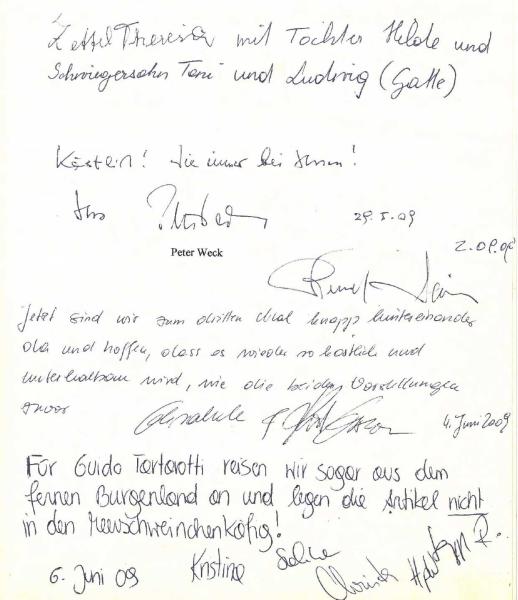 Zettel Theresia mit Tochter Hilde und
Schwiegersohn Toni und Ludwig (Gatte)
Köstlich! Wie immer bei Ihnen!
Ihr
29.5.09
Peter Weck
2.09.09
Jetzt sind wir zum dritten Mal knapp hintereinander
da und hoffen, dass es wieder so köstlich und
unterhaltsam wird, wie die beiden Vorstellungen
zuvor
4. Juni 2009
Für Guido Tartarotti reisen wir sogar aus dem
fernen Burgenland an und legen die Artikel nicht
in den Meerschweinchenkäfig!
6. Juni 09 Kristina